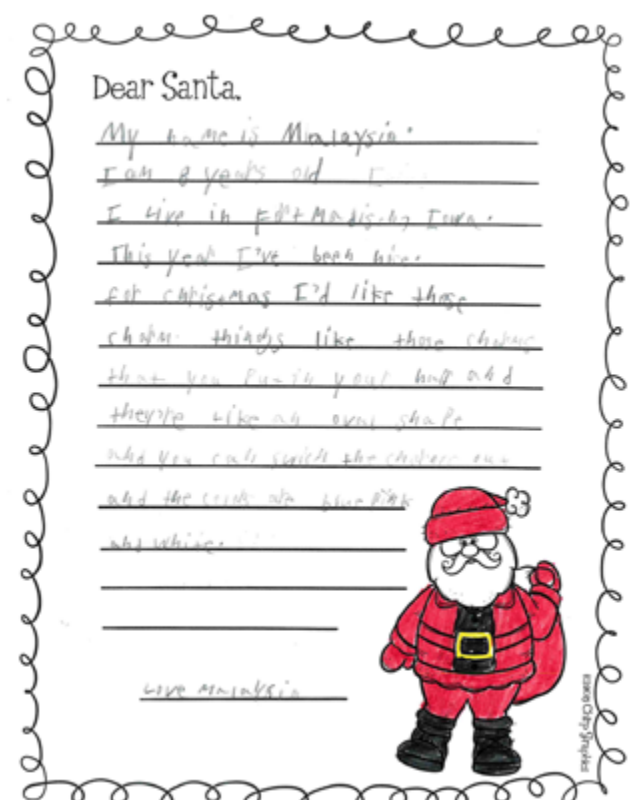 Dear Santa,
My name is Malaysia.
I am 8 years old
I Live in Fort Madison, Iowa.
This year I've been nice.
for christmas I'd like those
charm things like those charms
that you put in your hair and
they're like an oval shape
and you can switch the out
and the are blue pink
and white.
Love Malaysia